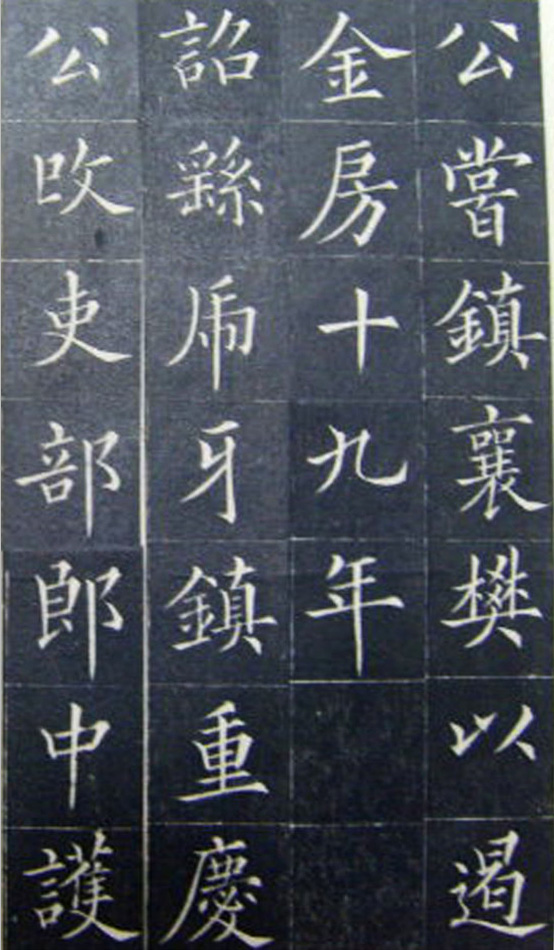 公嘗鎮襄樊以遏
金房十九年
詔繇虎牙鎮重慶
公改吏部郎中護